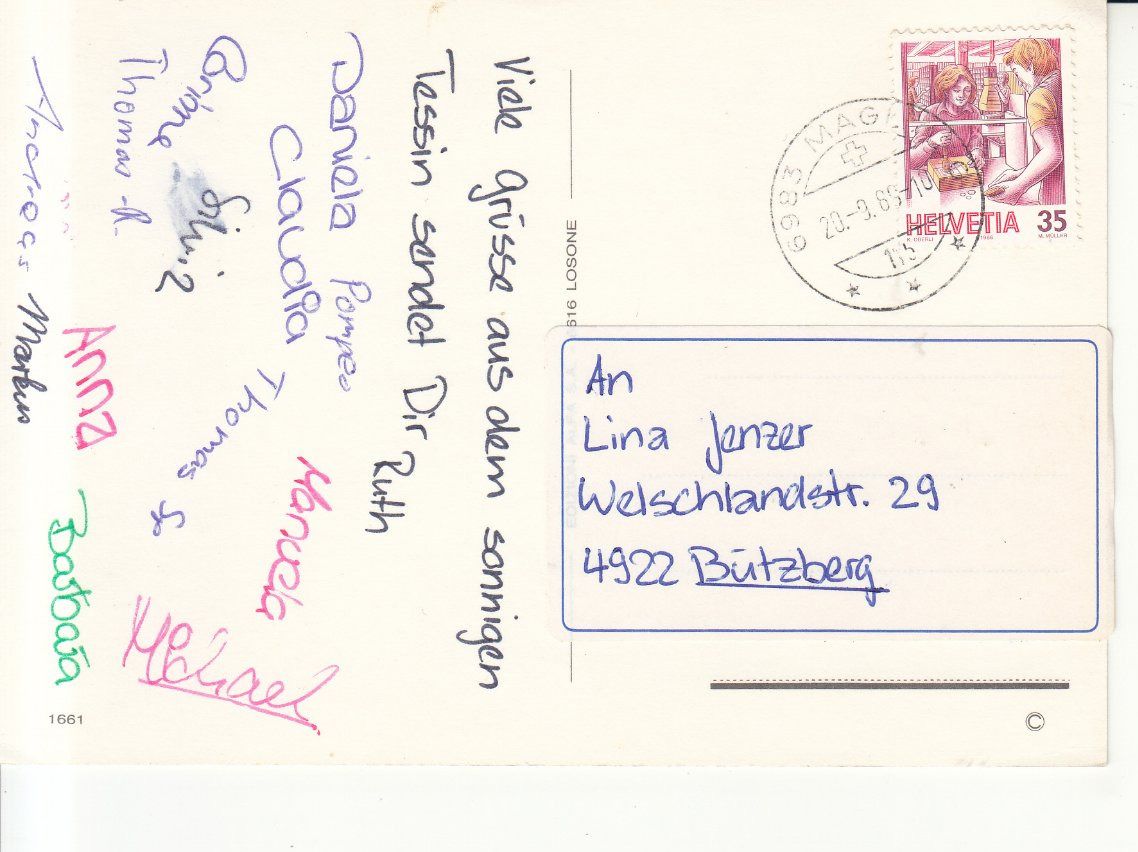 Viele Grüsse aus dem sonnigen
Tessin sendet Dir
Ruth
Daniela Pompeo
Claudia
Thomas
Manuela
Michael
Thomas R.
Silvi
Anna
Barbara
Markus
1661
6616 LOSONE
6983 MAGL
20.-9.88-10
HELVETIA 35
K. OBERLI 1986 M. MÜLLER
An
Lina Jenzer
Welschlandstr. 29
4922 Bützberg
©